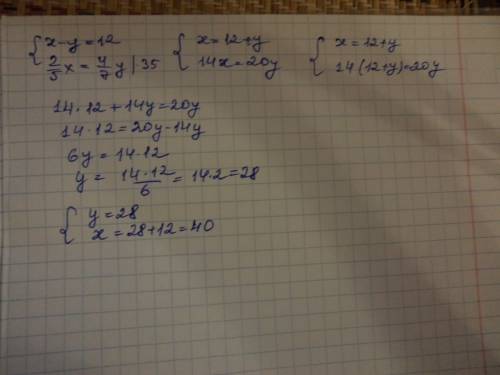 { x-y=12 { x=12+y { x=12+y
2/5x=4/7y|35 14x=20y 14(12+y)=20y
14·12+14y=20y
14·12=20y-14y
6y=14·12
y=14·12/6=14·2=28
{ y=28
x=28+12=40